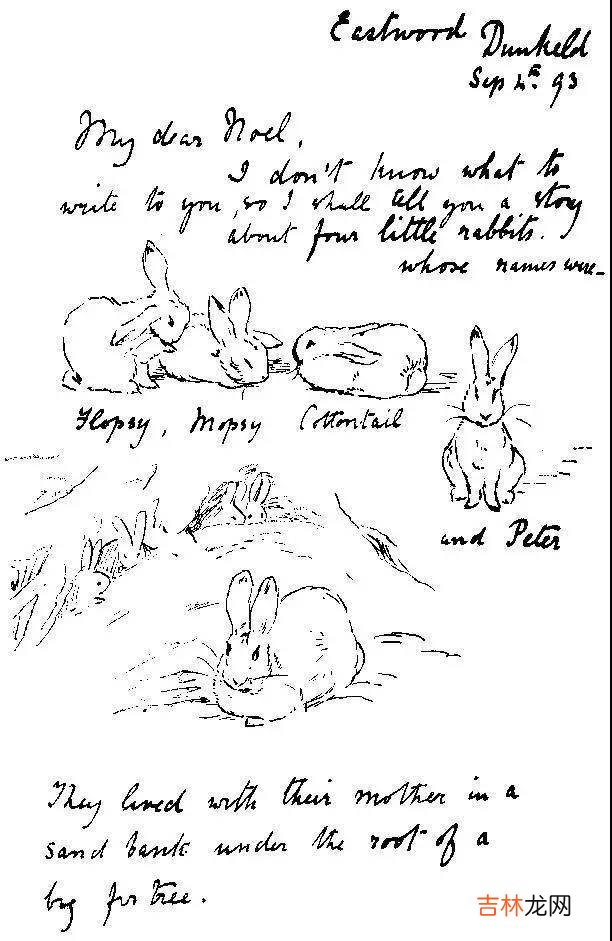 Eastwood Dunkeld
Sep 4th 93
My dear Noel,
I don't know what to
write to you, so I shall tell you a story
about four little rabbits.
whose names were–
Flopsy, Mopsy Cottontail
and Peter
They lived with their mother in a
sand bank under the root of a
big fir tree.
吉林龙网